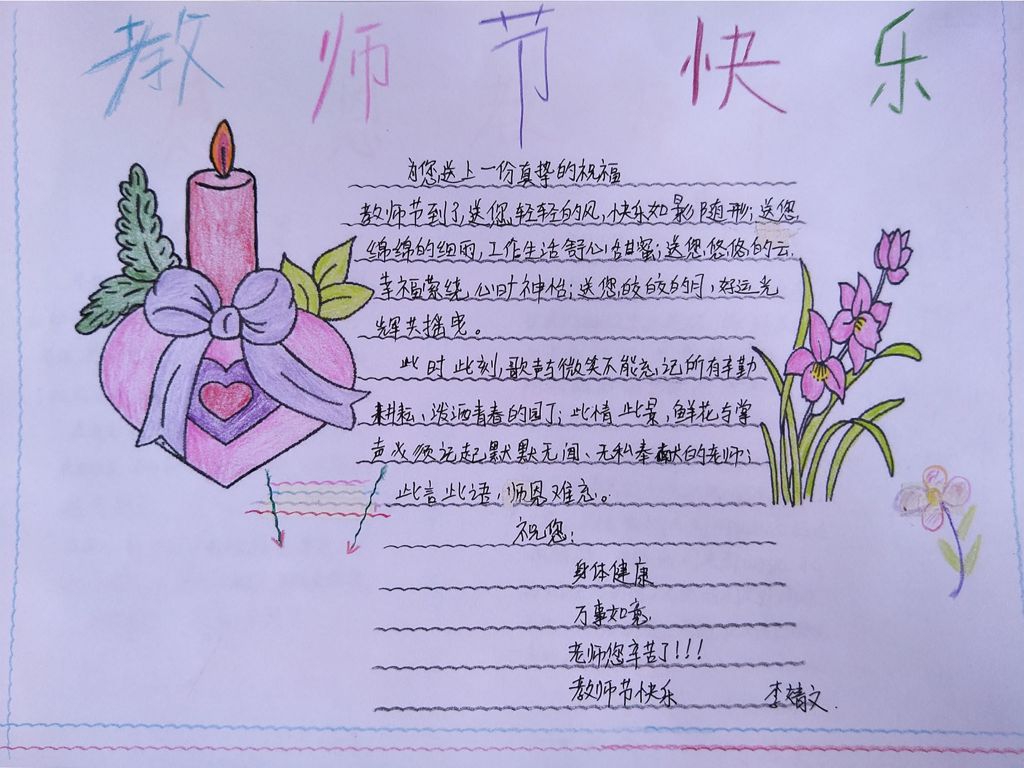 教师节快乐
为您送上一份真挚的祝福
教师节到了,送您轻轻的风,快乐如影随形;送您
绵绵的细雨,工作生活舒心甜蜜;送您悠悠的云,
幸福萦绕,心旷神怡;送您皎皎的月,好运光
辉共摇曳。
此时此刻,歌声与微笑不能忘记所有辛勤
耕耘、泼洒青春的园丁;此情此景,鲜花与掌
声必须记起默默无闻、无私奉献的老师;
此言此语,师恩难忘。
祝您:
身体健康
万事如意.
老师您辛苦了!!!
教师节快乐 李婧文.